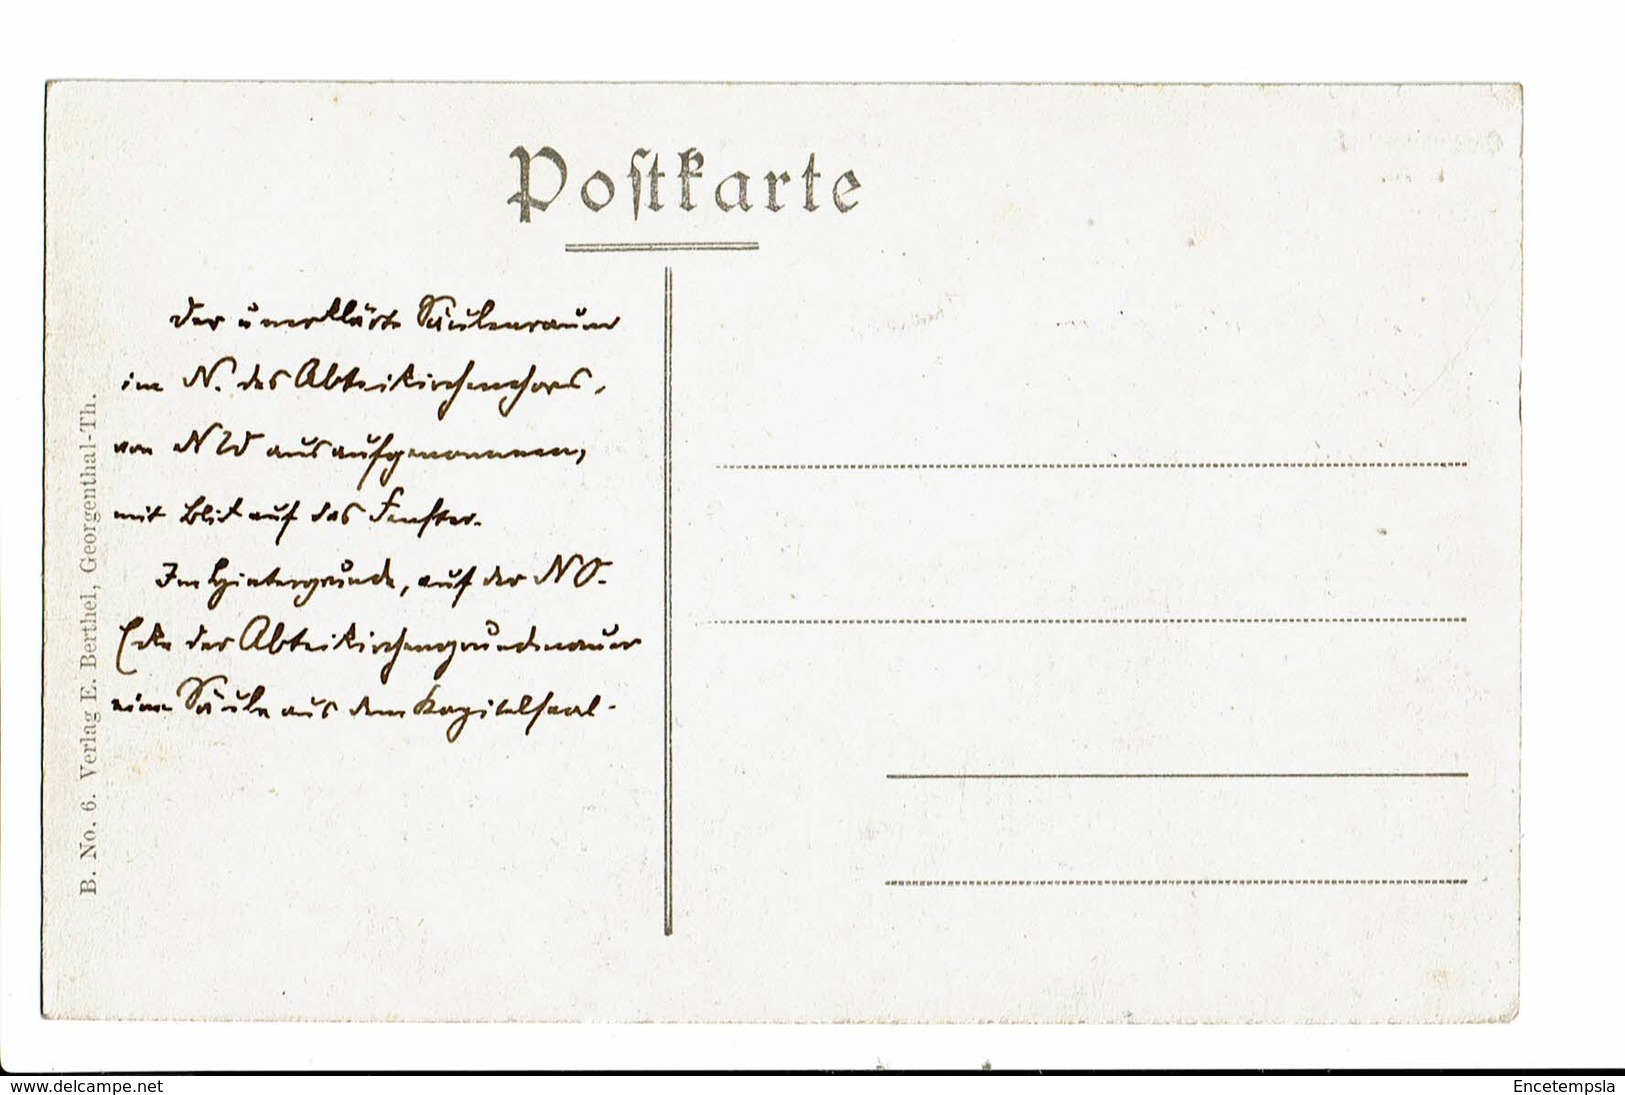 Postkarte
Der unerklärte Säulenraum
im N. des Abteikirchenchors,
von NW aus aufgenommen,
mit Blick auf das Fenster.
Im Hintergrunde, auf der NO.
Ecke der Abteikirchengrundmauer
eine Säule aus dem Kapitelsaal.
B. No. 6. Verlag E. Berthel, Georgenthal-Th.
www.delcampe.net
Encetempsla